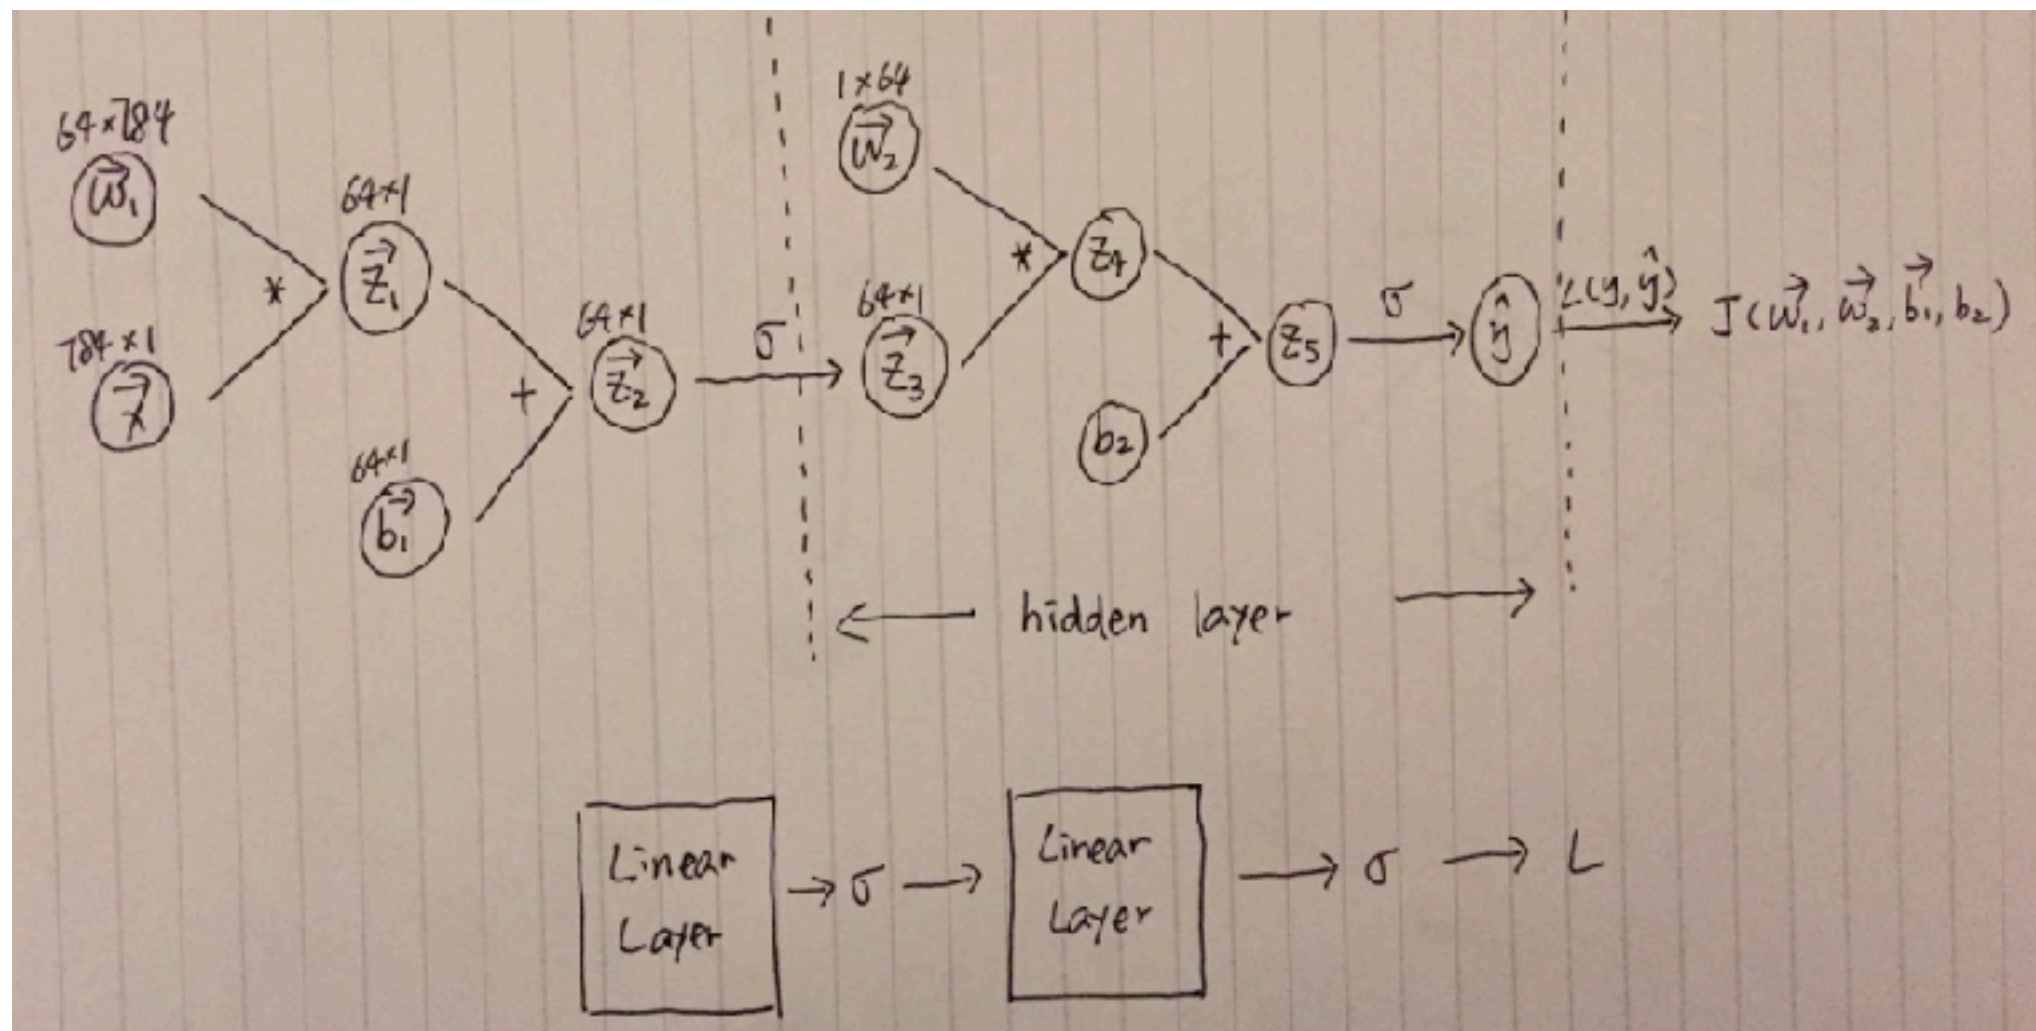 64×784
w⃗₁
784×1
x⃗
*
64×1
z⃗₁
64×1
b⃗₁
+
64×1
z⃗₂
σ
1×64
w⃗₂
64×1
z⃗₃
*
z₄
b₂
+
z₅
σ
ŷ
L(y, ŷ)
J(w⃗₁, w⃗₂, b⃗₁, b₂)
hidden layer
Linear
Layer
σ
Linear
Layer
σ
L